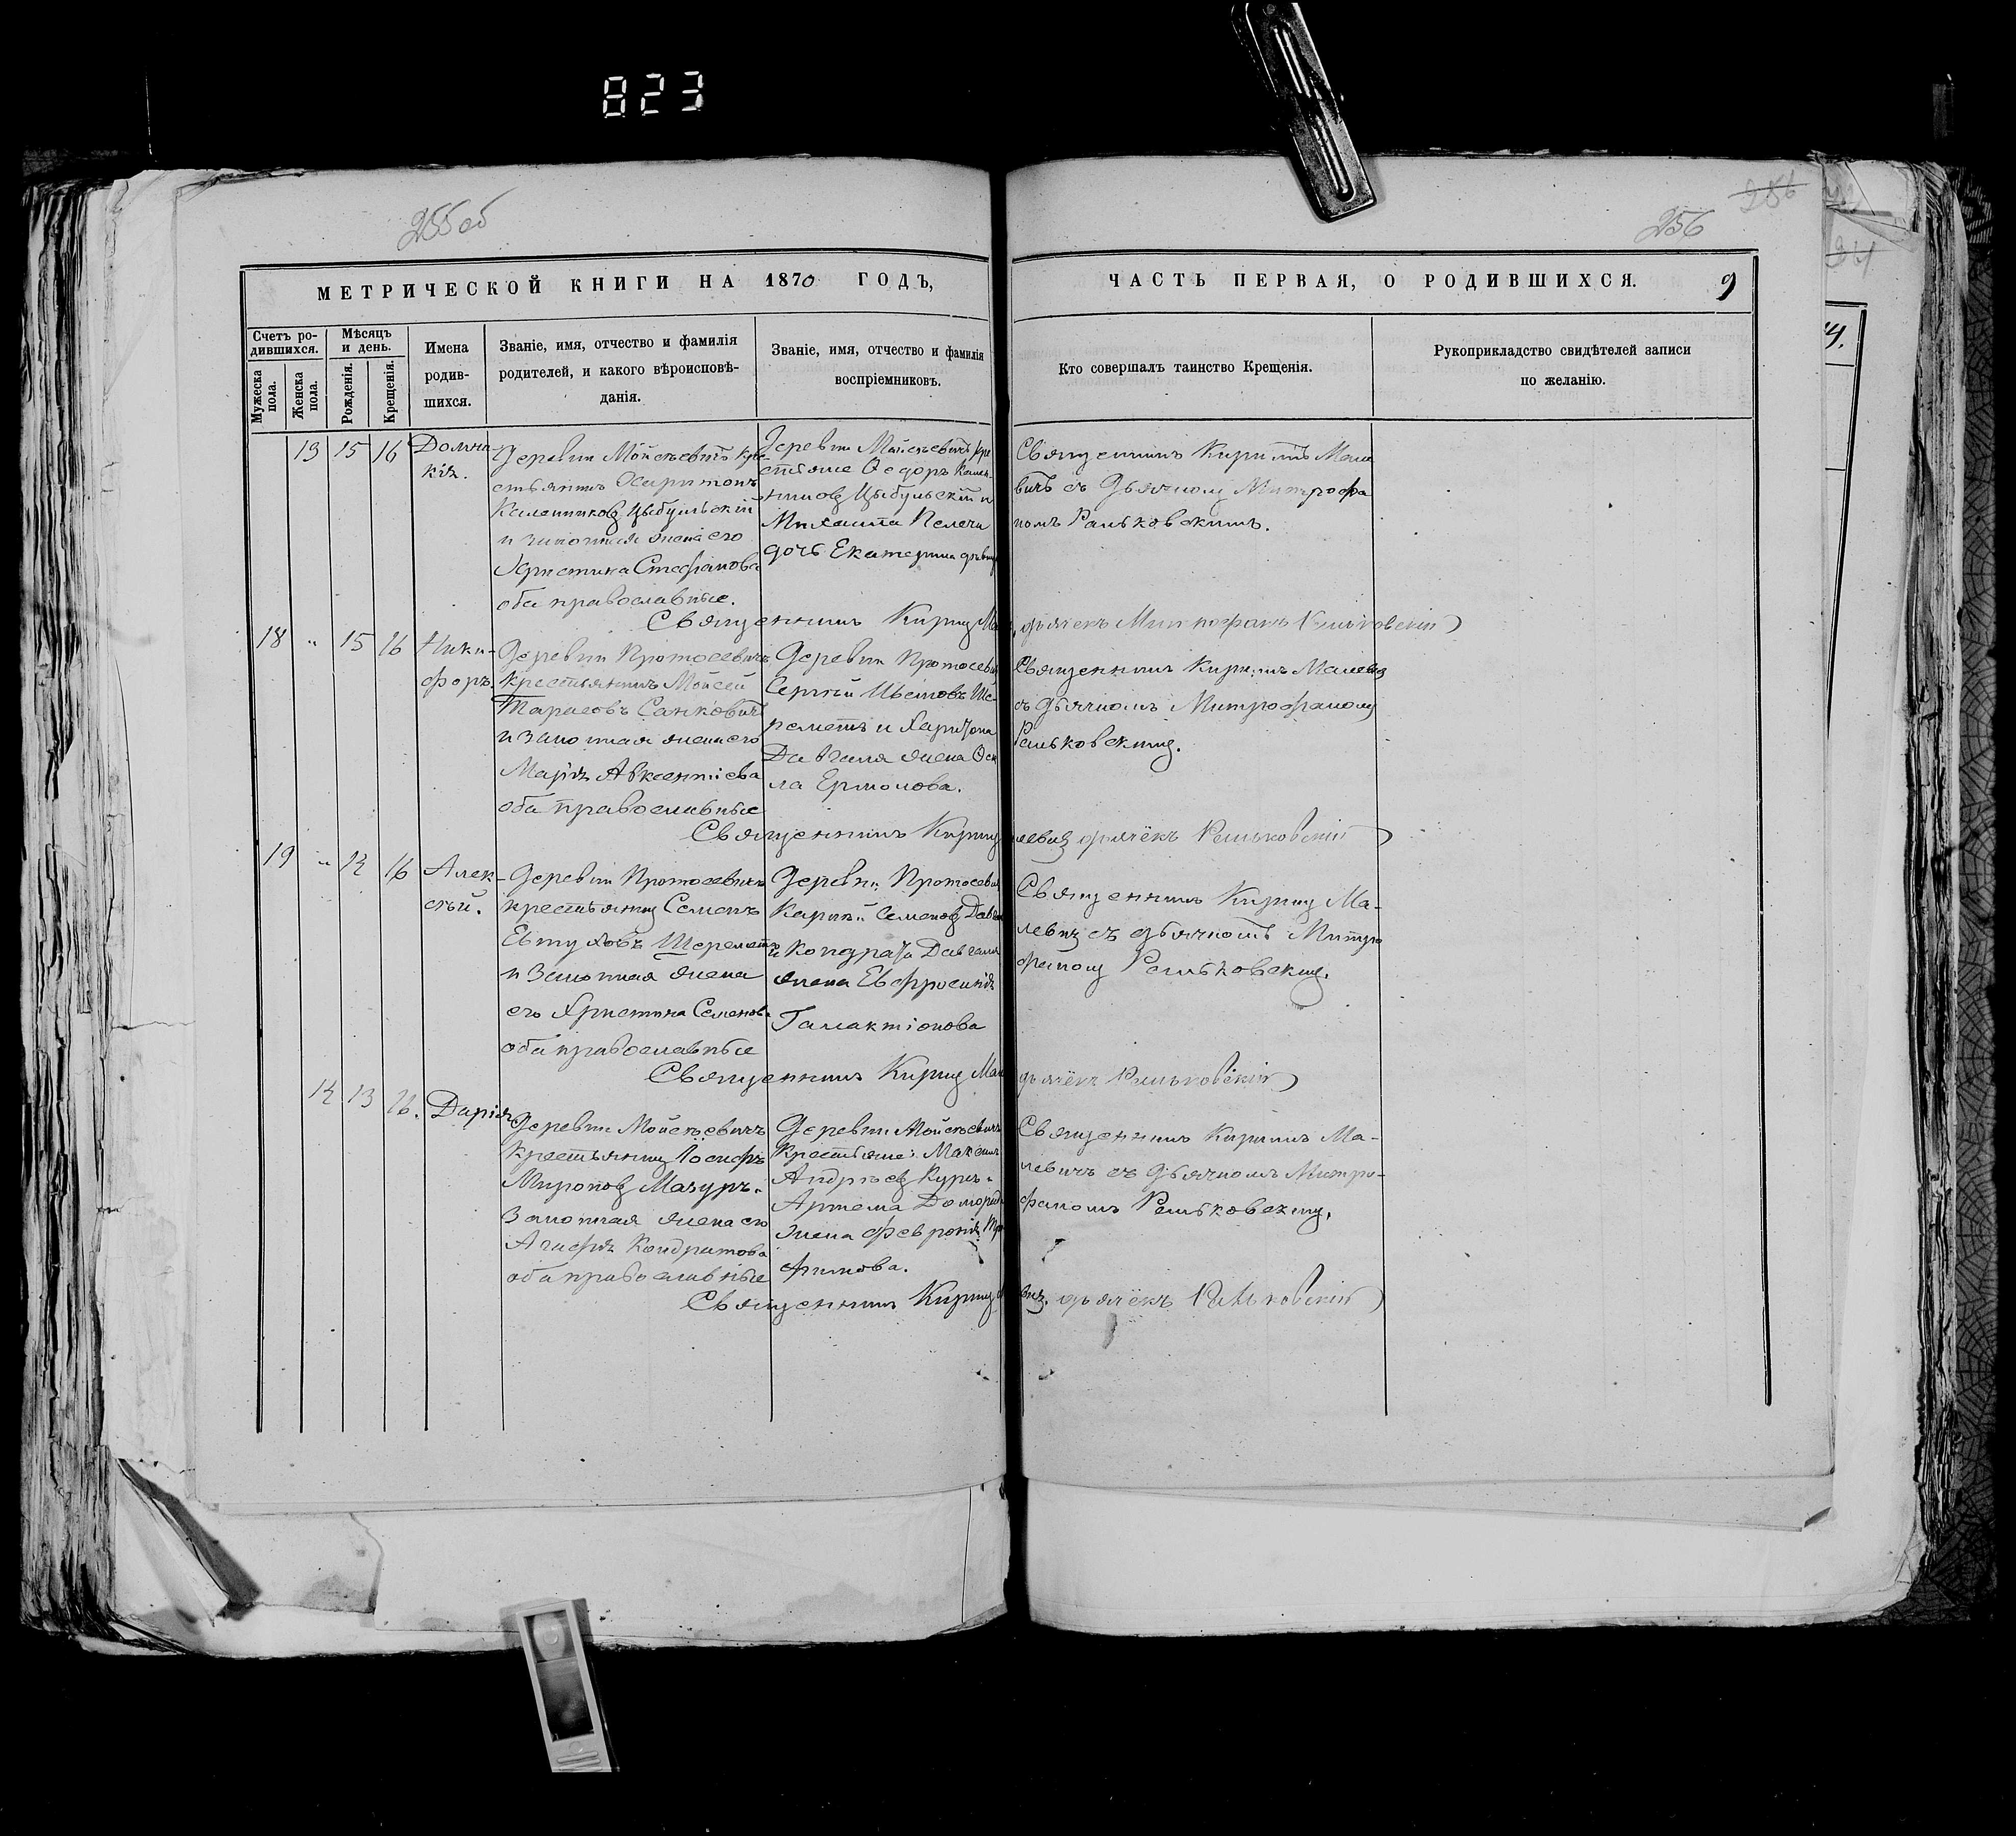 823
255 об
256
256
МЕТРИЧЕСКОЙ КНИГИ НА 1870 ГОДЪ,
ЧАСТЬ ПЕРВАЯ, О РОДИВШИХСЯ. 9
Счетъ ро-
дившихся.
Мужеска
пола.
Женска
пола.
Мѣсяцъ
и день.
Рожденія.
Крещенія.
Имена
родив-
шихся.
Званіе, имя, отчество и фамилія
родителей, и какого вѣроисповѣ-
данія.
Званіе, имя, отчество и фамилія
воспріемниковъ.
Кто совершалъ таинство Крещенія.
Рукоприкладство свидѣтелей записи
по желанію.
13 15 16
Домни-
кія.
Деревни Мойсѣевичъ кре
стьянинъ
Калениковъ Цыбульскій
и законная жена его
Христина Стефанова
оба православные.
Деревни Мойсѣевичъ кре
стьяне Ѳедоръ Кален-
никовъ Цыбульскій и
Михаила
дочь Екатерина дѣвица
Священникъ Кириллъ Мале
вичъ съ дьячкомъ Митрофа
номъ Раньковскимъ.
Священникъ Кирилъ дьячекъ Митрофанъ Раньковскій
18 " 15 16
Ники-
форъ.
Деревни Протосевичъ
крестьянинъ Мойсей
Тарасовъ Санковичъ
и законная жена его
Марія Авксентіева
оба православные
Деревни Протосевичъ
Сергій Ше-
реметъ и Харитона
Давгаля жена Ѳек
ла Ермолова.
Священникъ Кирилъ Малевичъ
съ дьячкомъ Митрофаномъ
Раньковскимъ.
Священникъ Кирилъ левичъ дьячёкъ Раньковскій
19 " 14 16
Алек-
сѣй.
Деревни Протосевичъ
крестьянинъ Семенъ
Евтуховъ Шереметъ
и законная жена
его Христина Семенова
оба православные
Деревни Протосевичъ
Карпъ Семеновъ
и Кондрата Давгаля
жена Евфросинія
Галактіонова
Священникъ Кирилъ Ма-
левичъ съ дьячкомъ Митро
фаномъ Раньковскимъ.
Священникъ Кирилъ Мал дьячёкъ Раньковскій
14 13 16.
Дарія
Деревни Мойсѣевичъ
крестьянинъ Іосифъ
Мироновъ Мазуръ.
законная жена его
Агафія Кондратова
оба православные
Деревни Мойсѣевичъ
крестьяне: Максимъ
Андрѣевъ
Артема
жена Февронія Тро
фимова.
Священникъ Кирилъ Ма-
левичъ съ дьячкомъ Митро-
фаномъ Раньковскимъ.
Священникъ Кирилъ вичъ. дьячёкъ Раньковскій